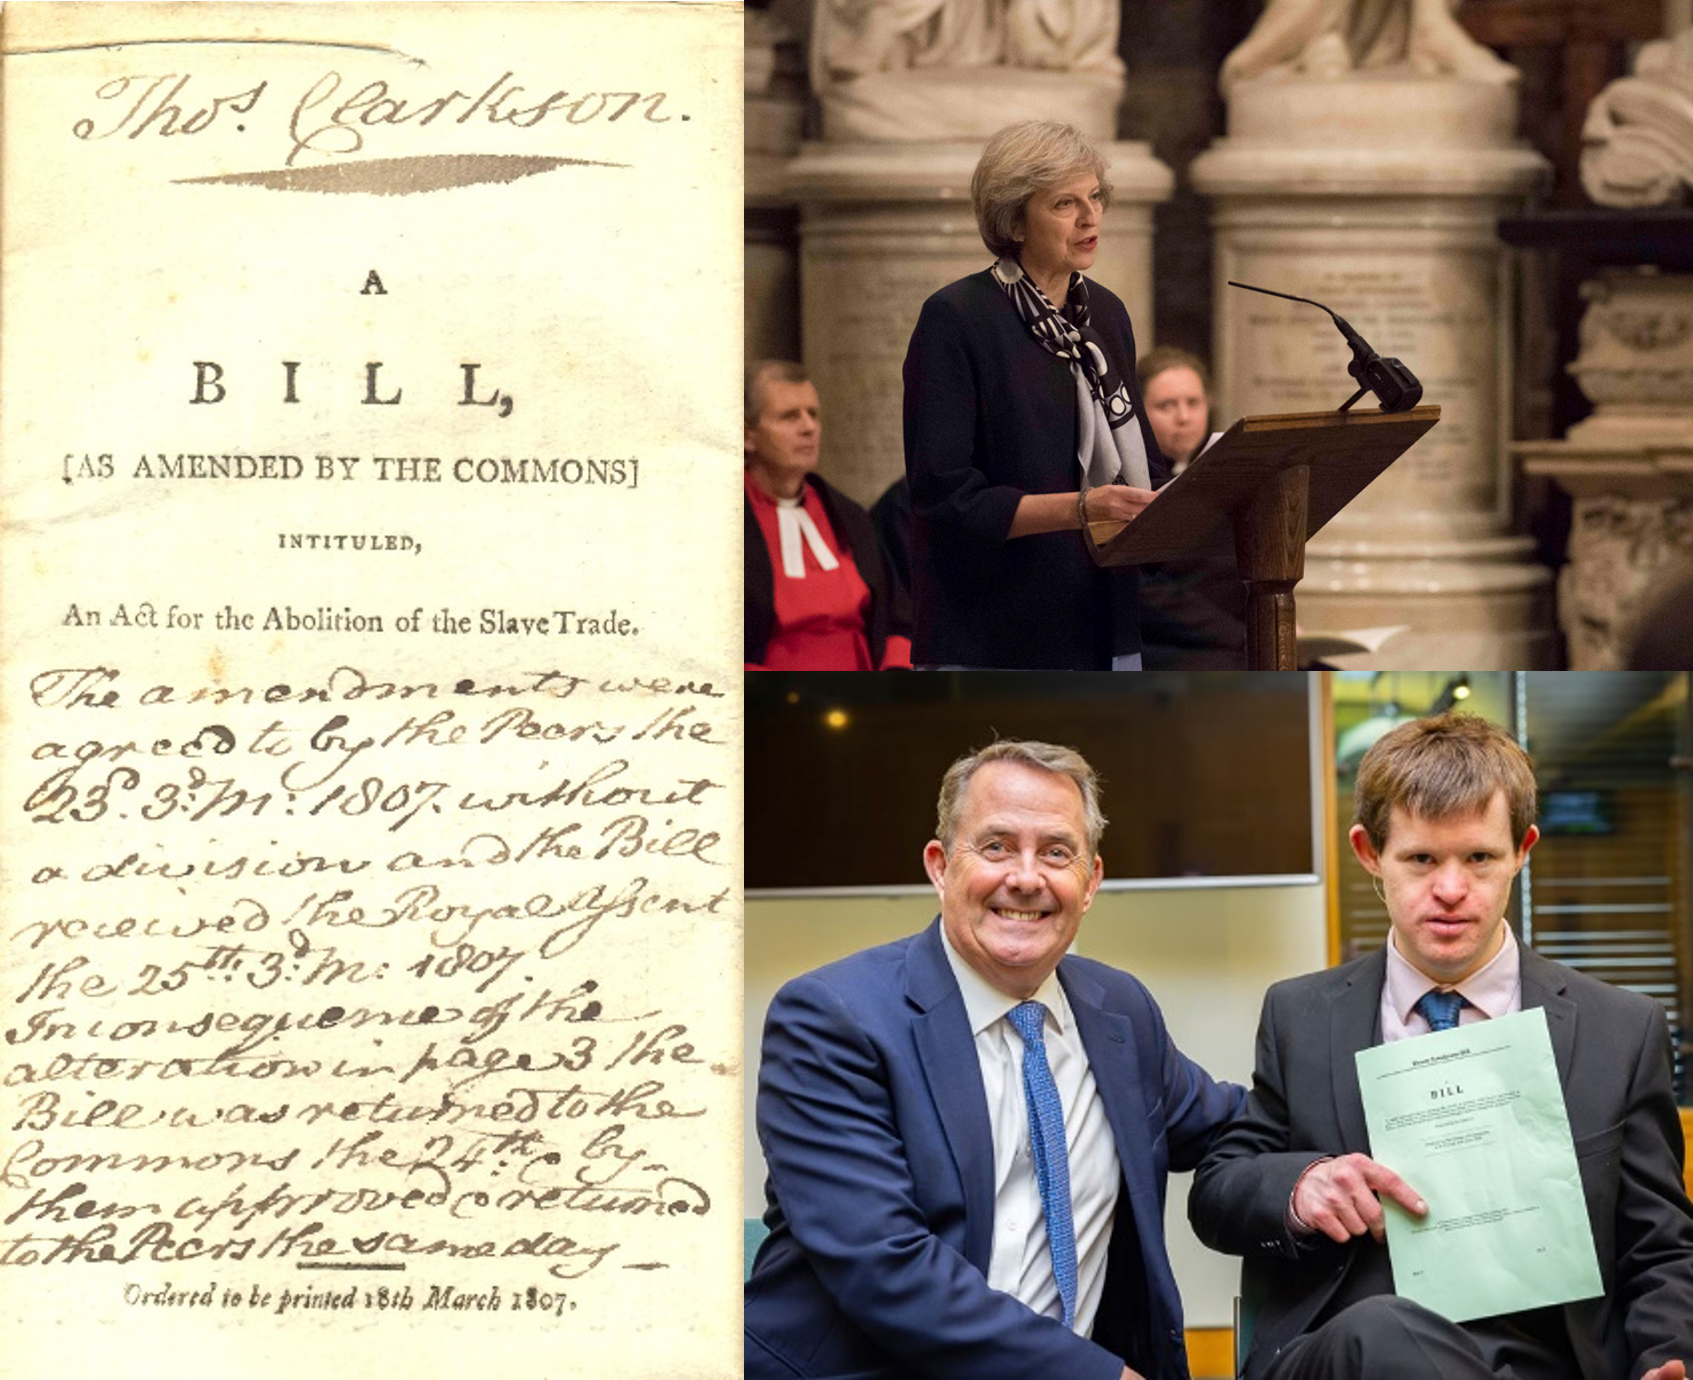 Thos. Clarkson.
A
BILL,
[AS AMENDED BY THE COMMONS]
INTITULED,
An Act for the Abolition of the Slave Trade.
The amendments were
agreed to by the Peers the
23d. 3d. M: 1807. without
a division and the Bill
received the Royal Assent
the 25th. 3d. M: 1807.
In consequence of the
alteration in page 3 the
Bill was returned to the
Commons the 24th. & by
them approved & returned
to the Peers the same day
Ordered to be printed 18th March 1807.
BILL